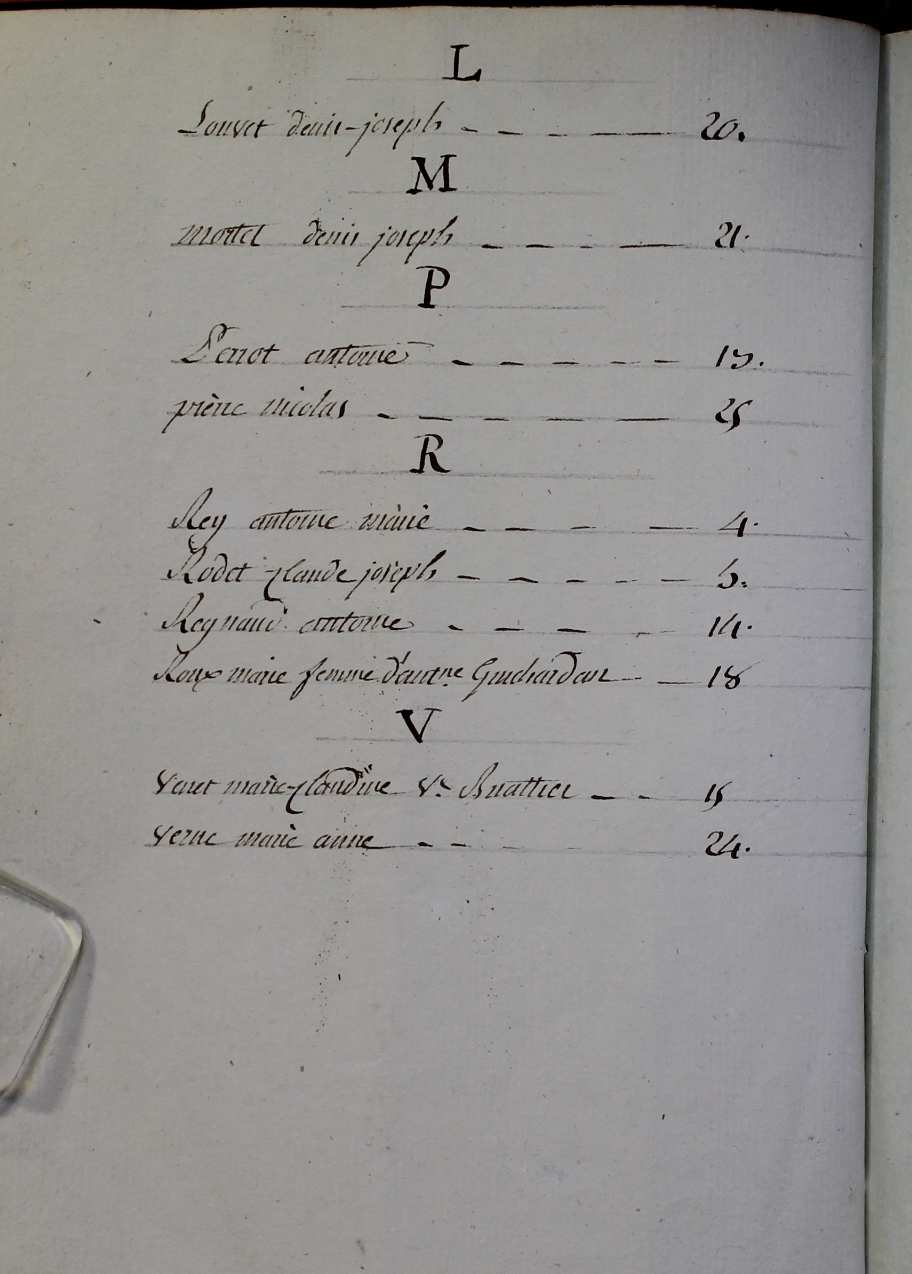 L
Louvet denis-joseph 20.
M
mottet denis joseph 21.
P
Perrot antoine 13.
pierre nicolas 25
R
Rey antoine marie 4.
Rodet claude joseph 5.
Regnaud antoine 14.
Roux marie femme d'antne Guichardan 18
V
Venet marie-claudine Ve Buattier 15
Verne marie anne 24.